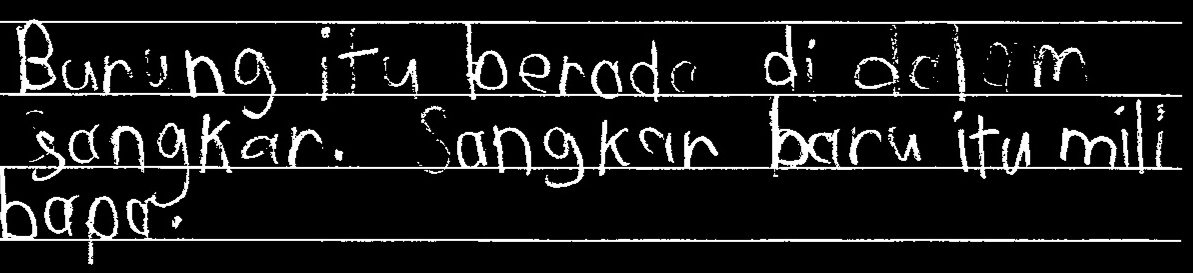 Burung itu berada di dalam
sangkar. Sangkar baru itu mili
bapa.